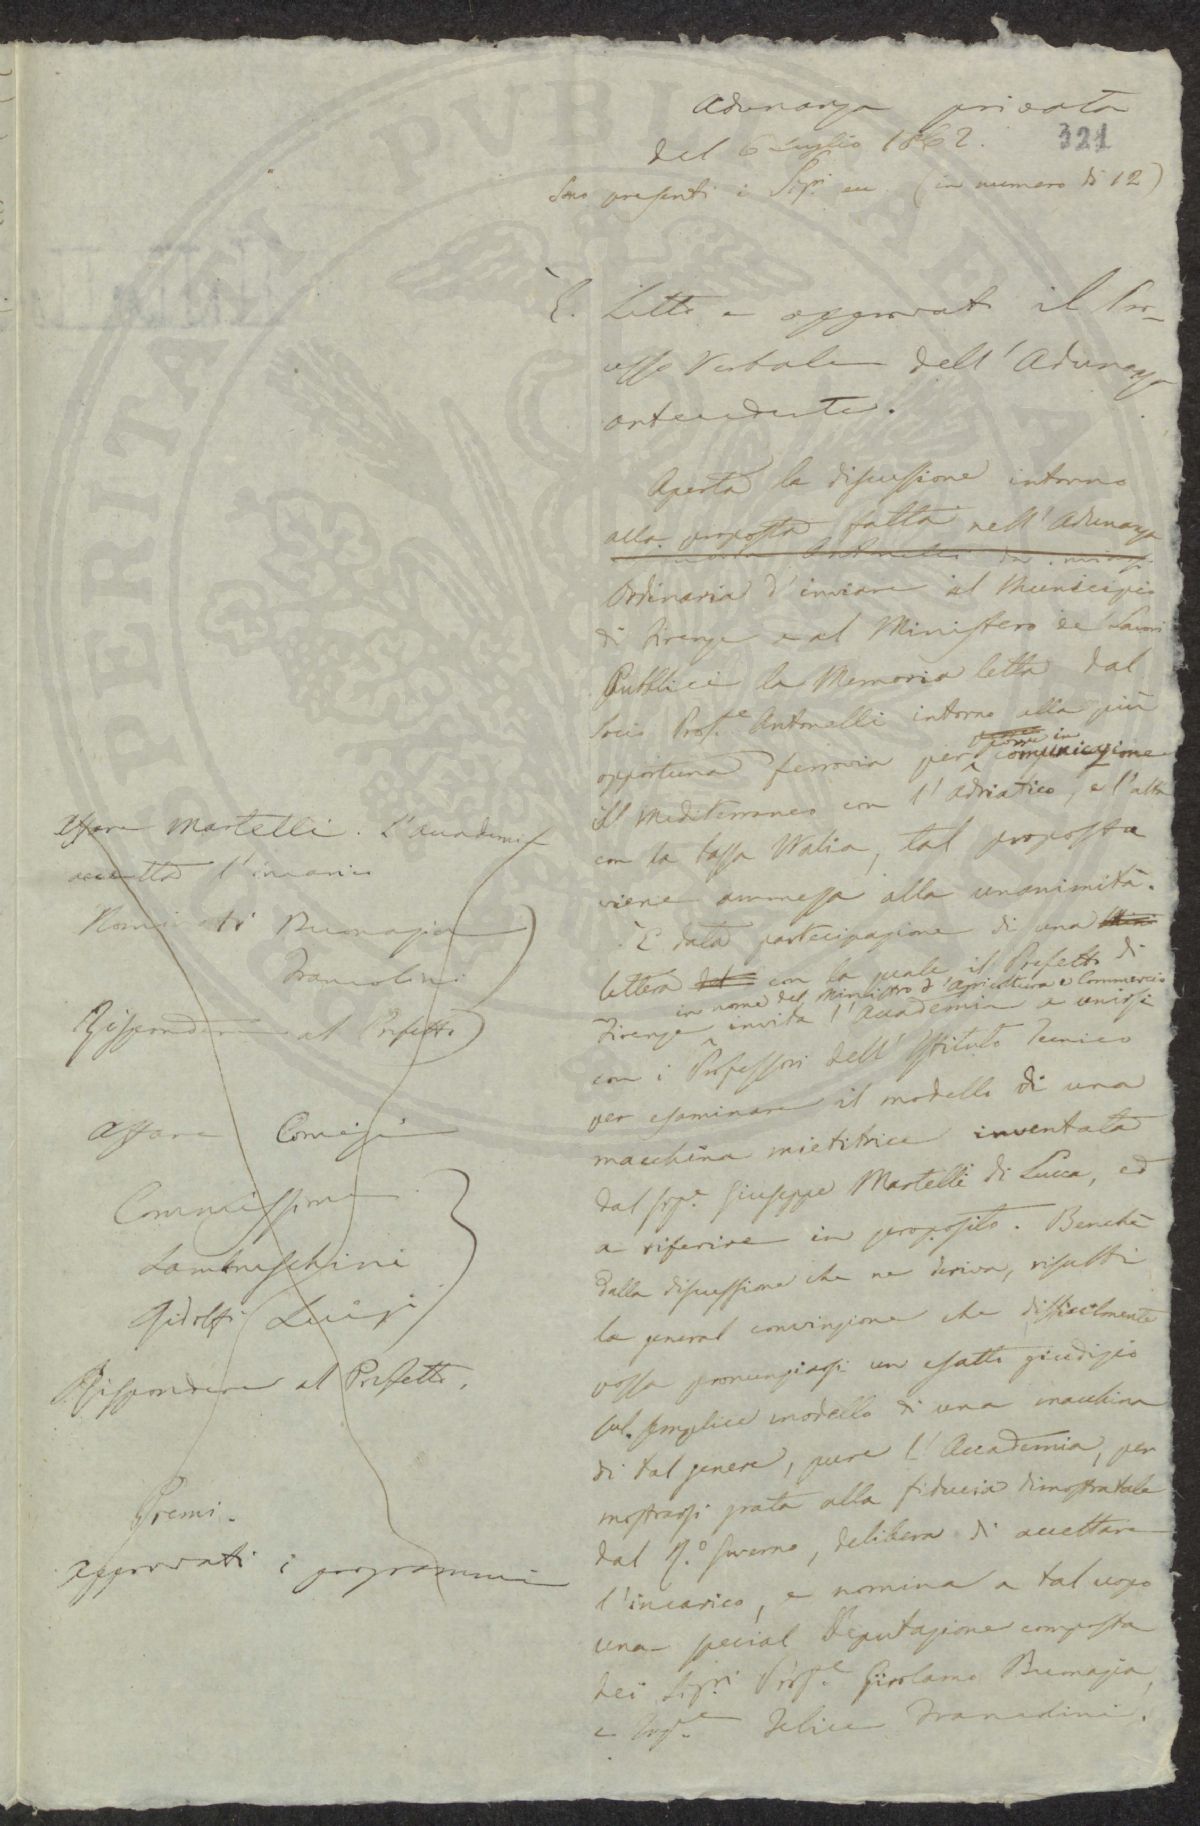 Adunanza privata
del 6 Luglio 1862.
321
Sono presenti i Sigri. ecc (in numero di 12)
È. Letto e approvato il Pro-
cesso Verbale dell' Adunanza
antecedente.
Aperta la discussione intorno
alla proposta fatta nell' Adunanza
Ordinaria d' inviare al Municipio
di Firenze e al Ministero de' Lavori
Pubblici la Memoria letta dal
Socio Prof.e Antonelli intorno alla più
opportuna ferrovia per porre in comunicazione
il Mediterraneo con l' Adriatico, e l' alta
con la bassa Italia, tal proposta
viene ammessa alla unanimità.
È data partecipazione di una
lettera con la quale il Prefetto di
in nome del Ministro d' Agricoltura e Commercio
Firenze invita l' Accademia a unirsi
con i Professori dell' Istituto Tecnico
per esaminare il modello di una
macchina mietitrice inventata
dal Sig.e Giuseppe Martelli di Lucca, ed
a riferire in proposito. Benchè
dalla discussione che ne deriva, risulti
la general convinzione che difficilmente
possa pronunziarsi un esatto giudizio
sul semplice modello di una macchina
di tal genere, pure l' Accademia, per
mostrarsi grata alla fiducia dimostratale
dal R.o Governo, delibera di accettare
l' incarico, e nomina a tal uopo
una special Deputazione composta
dei Sigri Prof.e Girolamo Buonazia,
e Ing.e Felice Francolini.
Affare Martelli. L' accademia
accetta l' incarico
Nominati Buonazia
Francolini
Rispondere al Prefetto
Affare
Commissione
Lambruschini
Ridolfi Luigi
Rispondere al Prefetto.
Premi.
approvati i programmi